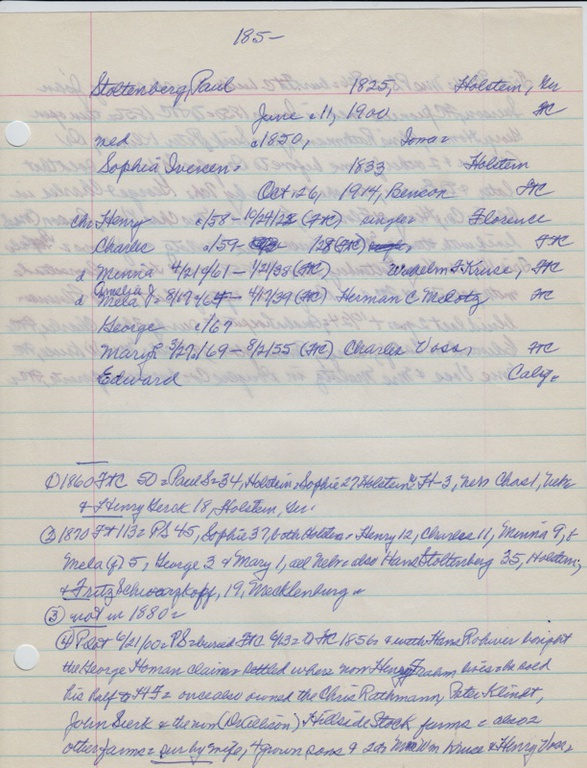 185-
Stoltenberg, Paul 1825, Holstein, Ger
June 11, 1900 FC
md c1850, Iowa
Sophia Iversen 1833 Holstein
Oct. 26, 1914, Benson, FC
ch: Henry c/58 - 10/24/28 (FC) single Florence
Charles c/59 - /28 (FC) FC
d Minna 4/21/61 - 1/21/38 (FC) Wilhelm F Kruse, FC
Amelia J.
d Mela 8/17/64 - 4/17/39 (FC) Herman C Melotz FC
George c/67
Mary L 3/27/69 - 8/2/55 (FC) Charles Voss, FC
Edward Calif.
① 1860 FC 50 = Paul S = 34, Holstein, Sophie 27 Holstein H-3, Chas 1, Neb
& Henry Gerck 18, Holstein, Ger.
② 1870 F# 113 = PS 45, Sophie 37, both Holstein, Henry 12, Charles 11, Minna 9, &
Mela (?) 5, George 3 & Mary 1, all Neb = also Hans Stoltenberg 35, Holstein,
& Fritz Schwarzkoff, 19, Mecklenburg
③ not in 1880 =
④ Pilot 6/21/00 = PS = buried FC 6/13 = FC 1856 & with Hans Rohwer bought
the George Homan claim = settled where now Henry Frahm lives = he sold
his half to HF = once also owned the Chris Rathmann, Peter Klindt,
John Sierk & the now Hillside Stock farms = also 2
other farms = sur by wife, 4 grown sons & 2 ds Wm Kruse & Henry Voss.